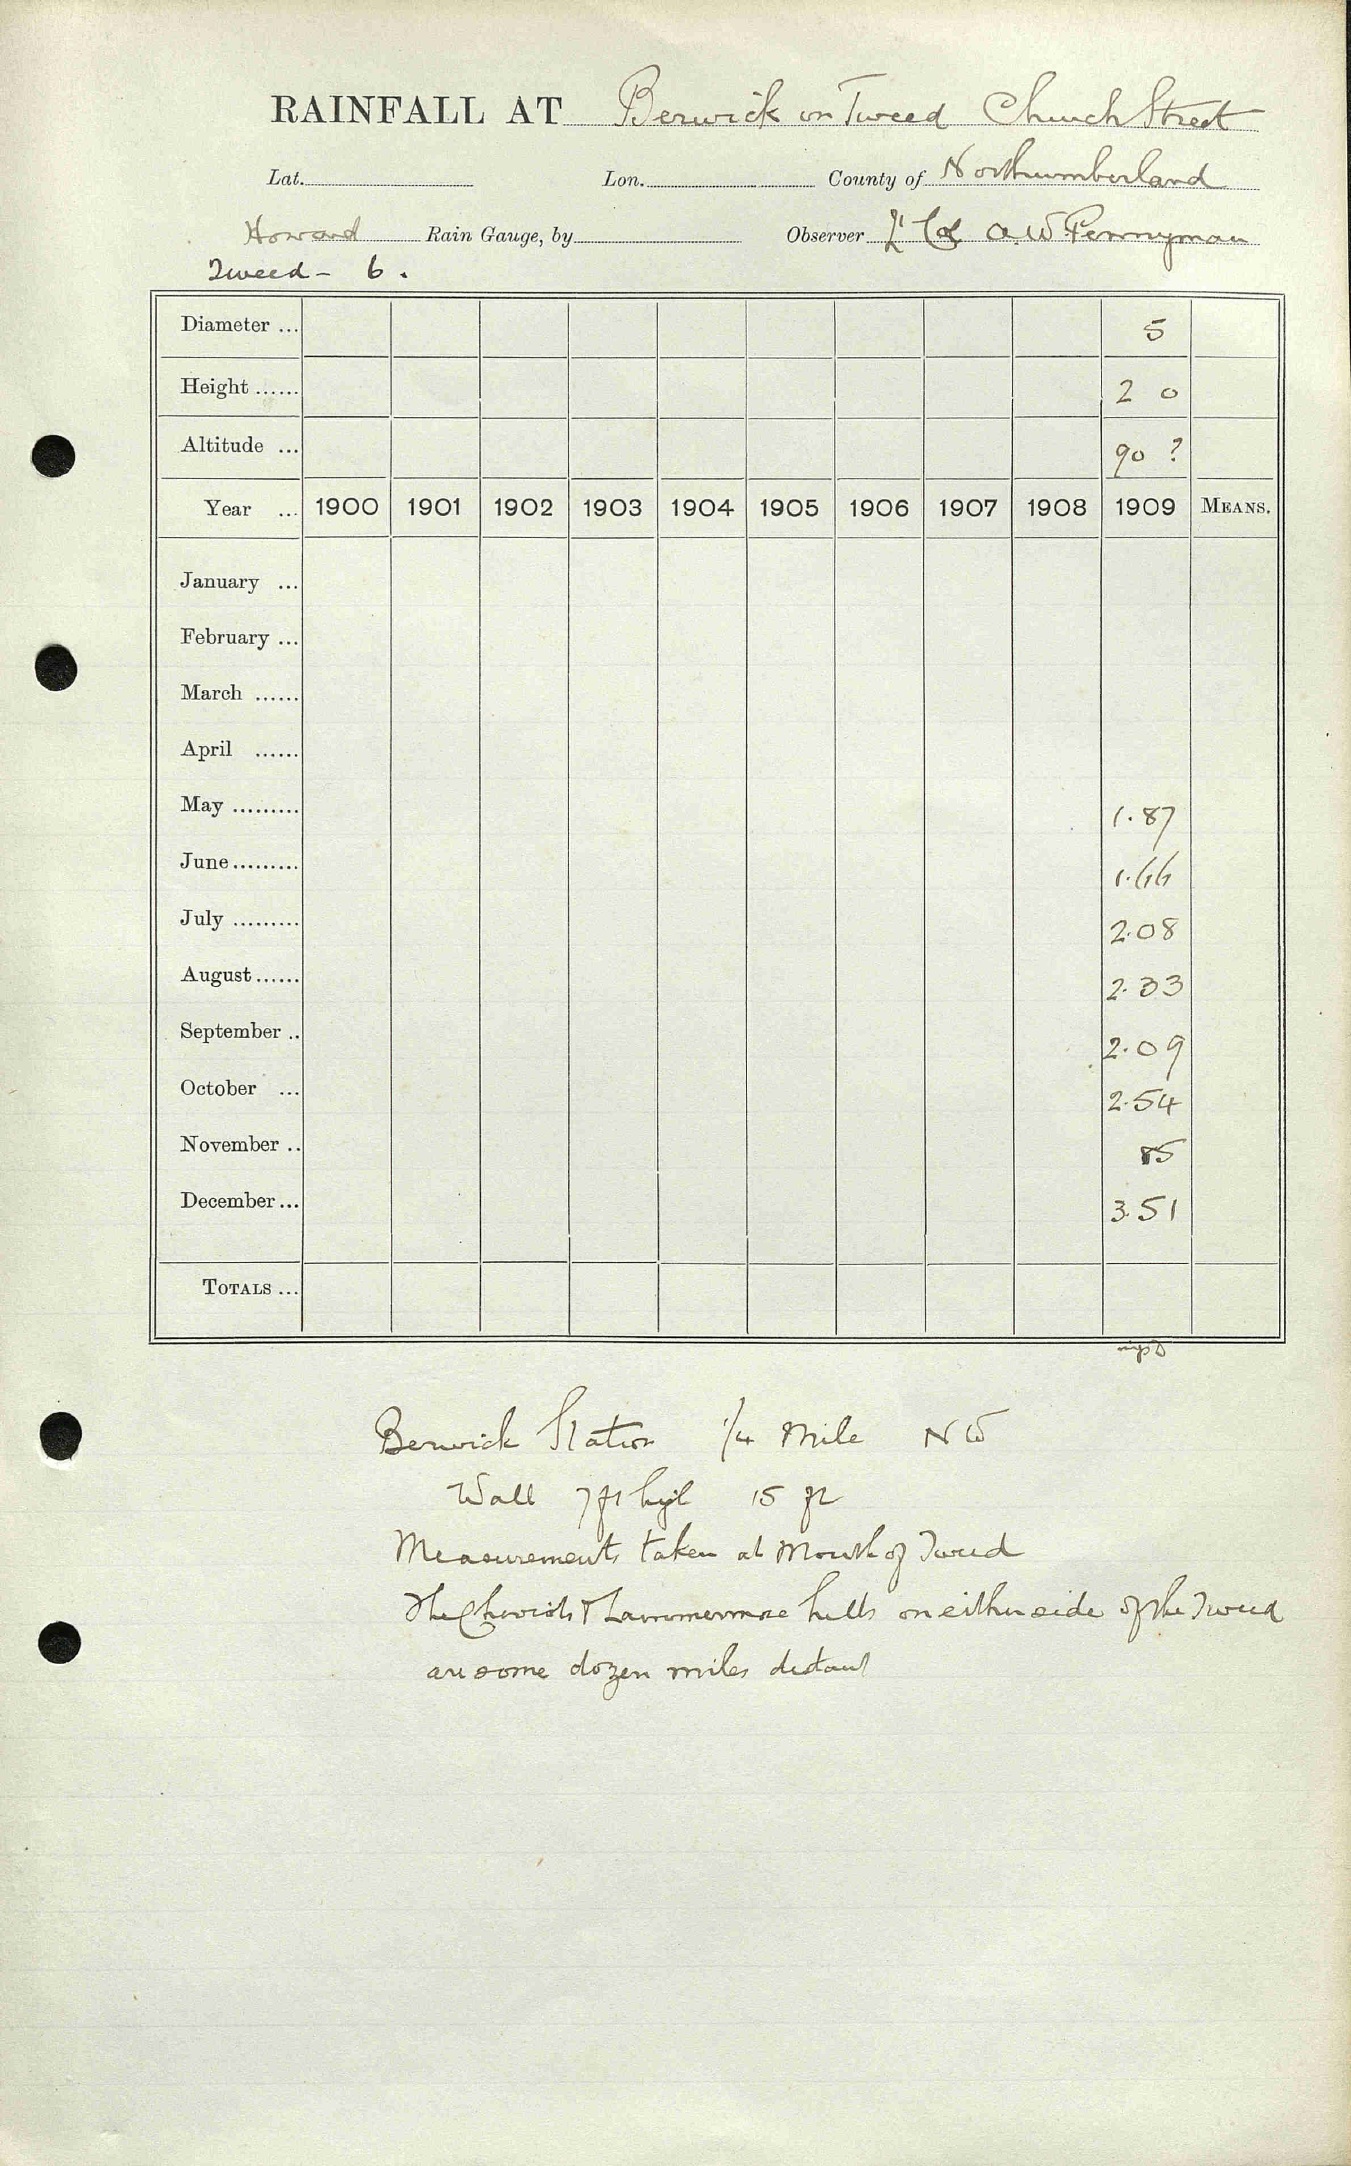 RAINFALL AT Berwick on Tweed Church Street
Lat. Lon. County of Northumberland
Howard Rain Gauge, by Observer Lt Col A.W Pennyman
Tweed - 6.
Diameter ... 5
Height ...... 2 0
Altitude ... 90 ?
Year ... 1900 1901 1902 1903 1904 1905 1906 1907 1908 1909 MEANS.
January ...
February ...
March ......
April ......
May ......... 1.87
June ......... 1.66
July ......... 2.08
August ...... 2.33
September .. 2.09
October ... 2.54
November .. 85
December ... 3.51
TOTALS ...
Berwick Station 1/4 Mile NW
Wall 7 ft high 15 ft
Measurements taken at Mouth of Tweed
The Cheviots & Lammermore hills on either side of the Tweed
are some dozen miles distant